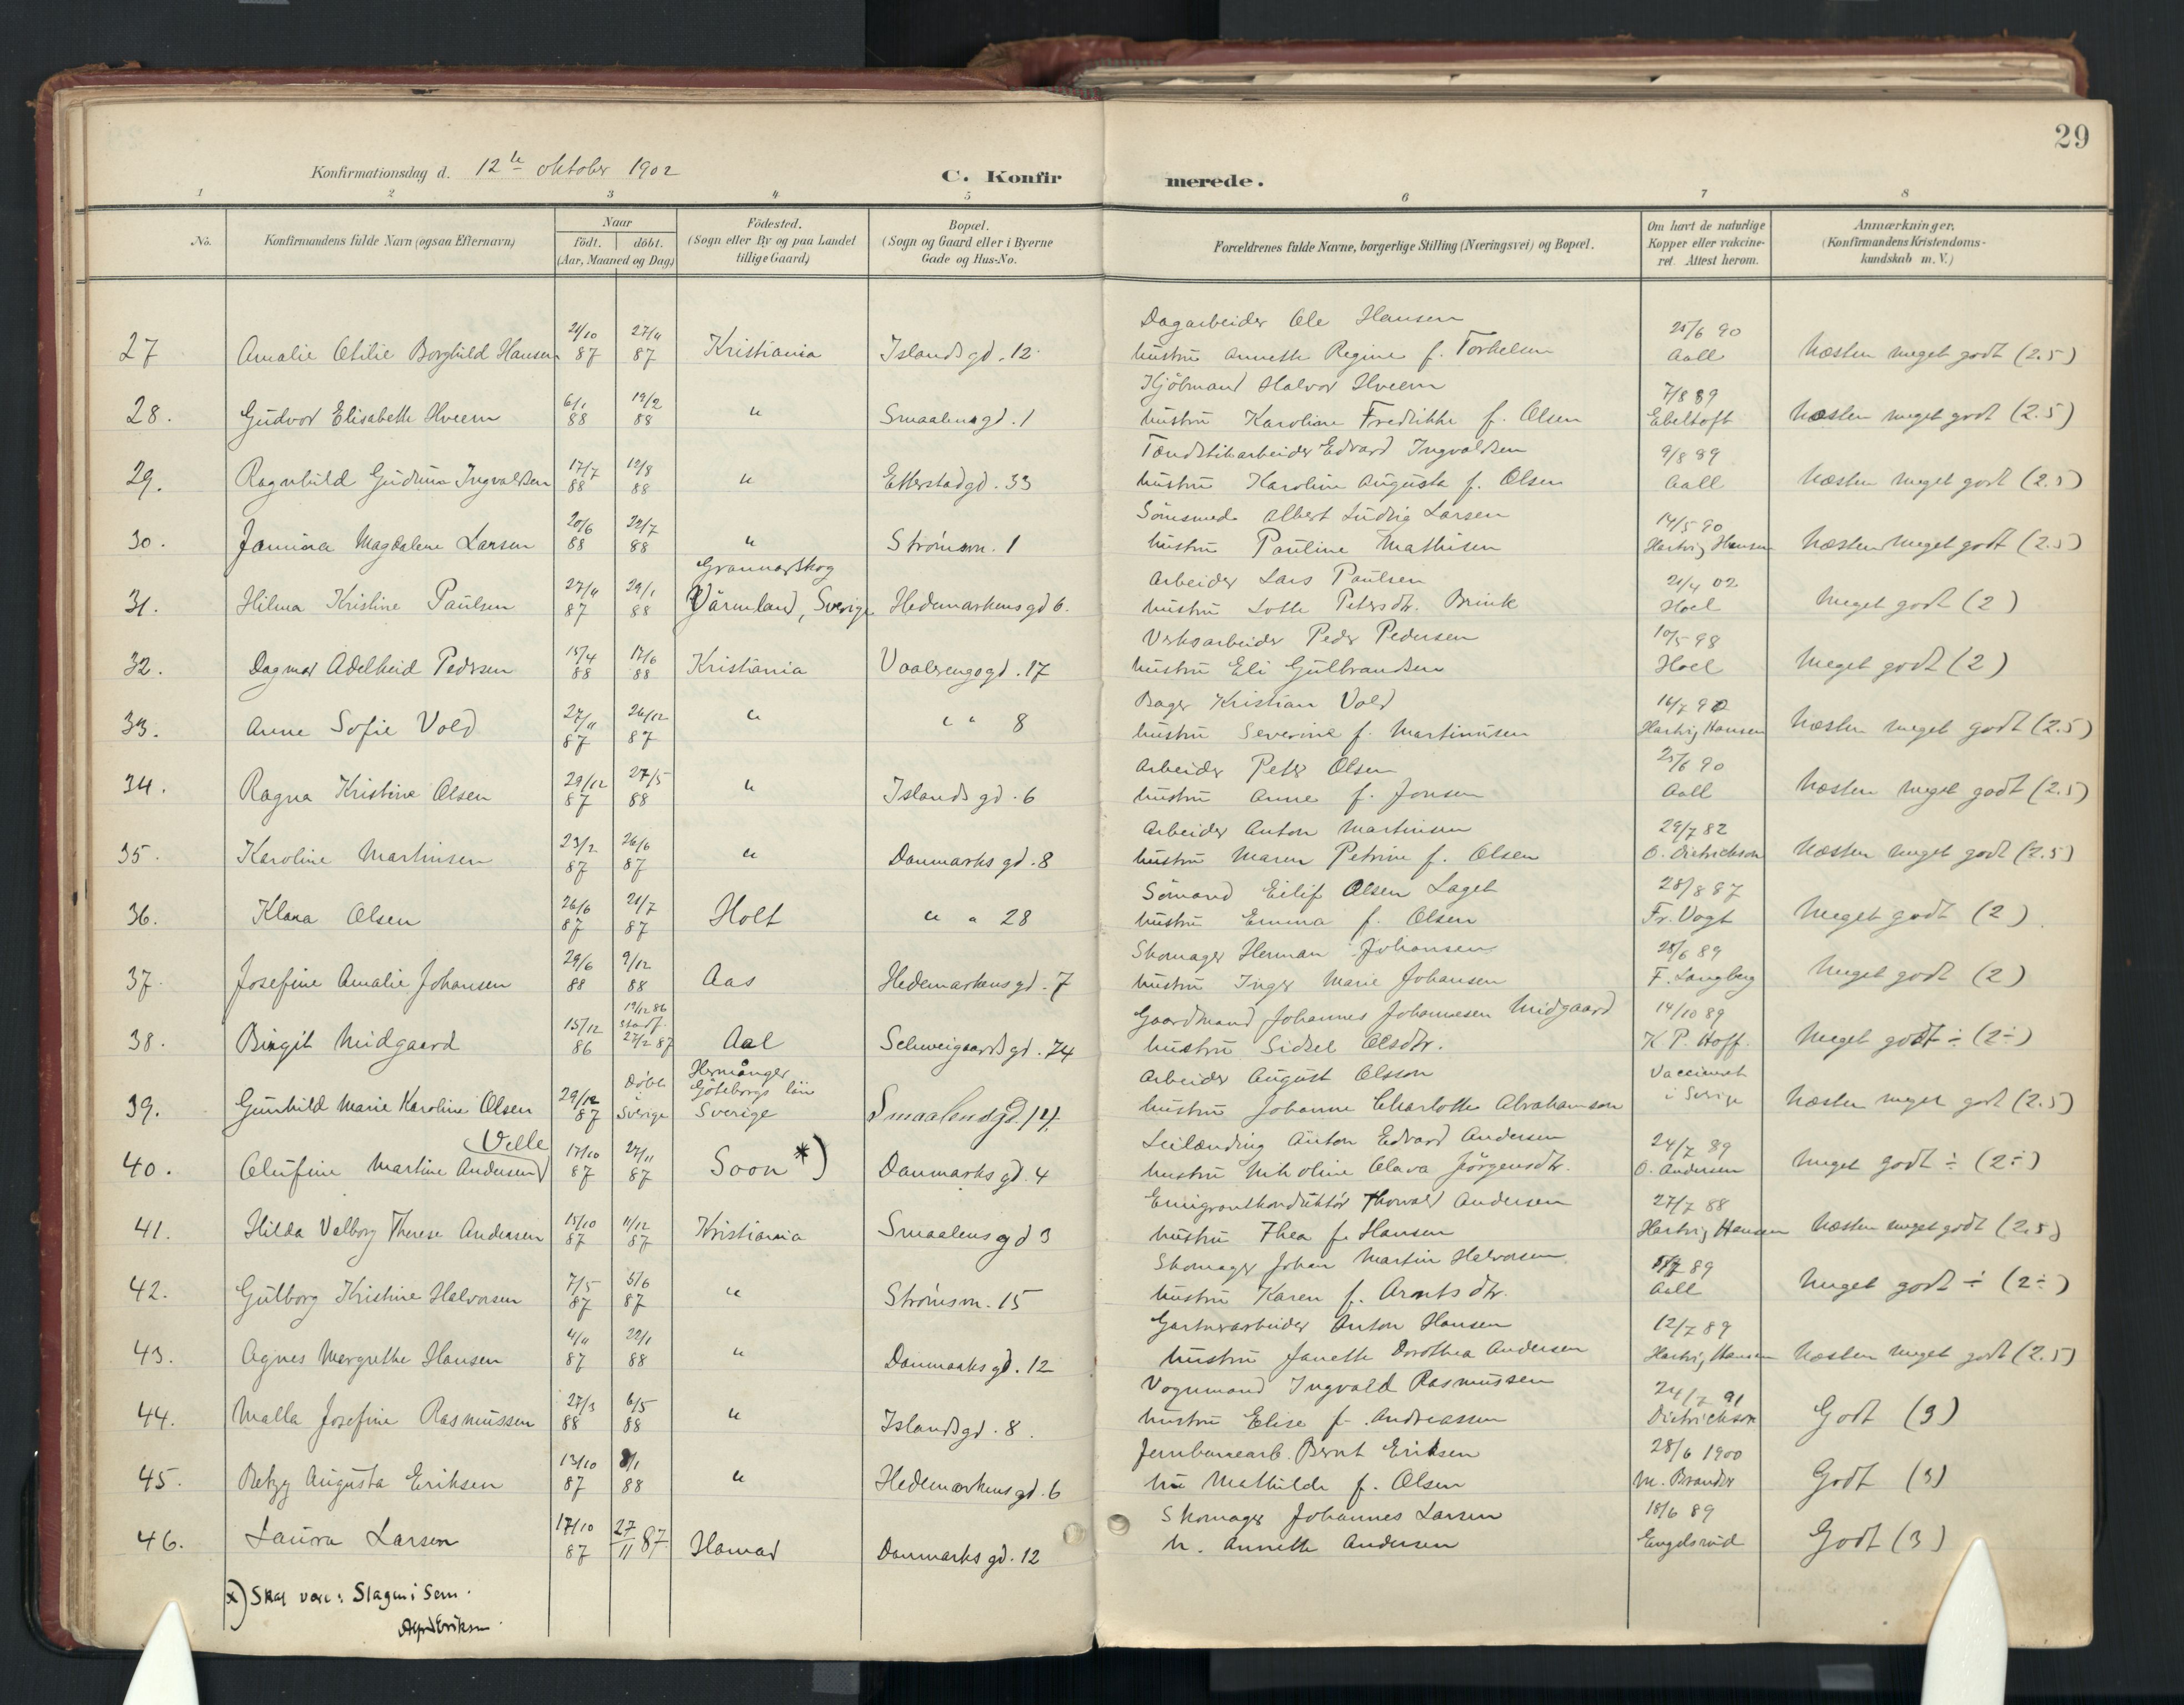 29
Konfirmationsdag d. 12te oktober 1902
C. Konfirmerede.
1 2 3 4 5 6 7 8
No. Konfirmandens fulde Navn (ogsaa Efternavn) Naar födt. döbt. (Aar, Maaned og Dag) Födested. (Sogn eller By og paa Landet tillige Gaard) Bopæl. (Sogn og Gaard eller i Byerne Gade og Hus-No. Forældrenes fulde Navne, borgerlige Stilling (Næringsvei) og Bopæl. Om havt de naturlige Kopper eller vakcineret. Attest herom. Anmærkninger. (Konfirmandens Kristendomskundskab m. V.)
Dagarbeider Ole Hansen
27 Amalie Otilie Borghild Hansen 87 27/11 87 Kristiania Islandsgd. 12 hustru Annette Regine f. Torkelsen 25/6 90 Aall Næsten meget godt (2.5)
Kjöbmand Halvor Hveem
28. Gudvor Elisabeth Hveem 6/1 88 19/2 88 " Smaalensgd. 1 hustru Karoline Fredrikke f. Olsen 7/8 89 Ebeltoft Næsten meget godt (2.5)
Tændstikarbeider Edvard Ingvaldsen
29. Ragnhild Gudrun Ingvaldsen 17/7 88 19/8 88 " Etterstadgd. 33 hustru Karoline Augusta f. Olsen 9/8 89 Aall Næsten meget godt (2.5)
Sömsmed Albert Ludvig Larsen
30. Magdalene Larsen 20/6 88 22/7 88 " Strömsvn. 1 hustru Pauline Mathisen 14/5 90 Hartvig Hansen Næsten meget godt (2.5)
Arbeider Lars Paulsen
31. Hilma Kristine Paulsen 27/11 87 29/1 88 Värmland, Sverige Hedemarkensgd 6. hustru Lotte Petersdtr. Brink 21/4 02 Hoel Meget godt (2)
Verksarbeider Peder Pedersen
32. Dagmar Adelheid Pedersen 15/4 88 17/6 88 Kristiania Vaalerengsgd. 17 hustru Eli Gulbrandsen 10/5 98 Hoel Meget godt (2)
Bager Kristian Vold
33. Anne Sofie Vold 27/11 87 26/12 87 " " " 8 hustru Severine f. Martinusen 16/7 90 Hartvig Hansen Næsten meget godt (2.5)
Arbeider Peter Olsen
34. Ragna Kristine Olsen 29/12 87 27/5 88 " Islandsgd. 6 hustru Anne f. Jonsen 25/6 90 Aall Næsten meget godt (2.5)
Arbeider Anton Martinsen
35. Karoline Martinsen 23/2 87 26/6 87 " Danmarksgd. 8 hustru Maren Petrine f. Olsen 29/7 82 O. Dietrichson Næsten meget godt (2.5)
Sömand Eilif Olsen Laget
36. Klara Olsen 26/6 87 21/7 87 Holt " " 28 hustru Emma f. Olsen 28/8 87 Fr. Vogt Meget godt (2)
Skomager Herman Johansen
37. Josefine Amalie Johansen 29/6 88 9/12 88 Aas Hedemarkensgd. 7 hustru Inger Marie Johansen 28/6 89 F. Langberg Meget godt (2)
Gaardmand Johannes Johannesen Midgaard
38. Birgit Midgaard 15/12 86 19/12 86 stadf. 27/2 87 Aal Schweigaardsgd. 74 hustru Sidsel Olsdtr. 14/10 89 K. P. Hoff. Meget godt ÷ (2÷)
Arbeider August Olsson
39. Gunhild Marie Karoline Olsen 29/12 87 Döbt i Sverige Hermånger Göteborgs län Sverige Smaalensgd. 14 hustru Johanne Charlotte Abrahamson Vaccineret i Sverige Næsten meget godt (2.5)
Leilænding Anton Edvard Andersen
40. Olufine Martine Andersen (Velle) 17/10 87 27/11 87 Soon *) Danmarksgd. 4 hustru Olava Jörgensdtr. 24/7 89 O. Andersen Meget godt ÷ (2÷)
Emigrantkonduktör Thorvald Andersen
41. Hilda Valborg Therese Andersen 15/10 87 11/12 87 Kristiania Smaalensgd 3 hustru Thea f. Hansen 27/7 88 Hartvig Hansen Næsten meget godt (2.5)
Skomager Johan Martin Halvorsen
42. Gulborg Kristine Halvorsen 7/5 87 5/6 87 " Strömsvn. 15 hustru Karen f. Arntsdtr. 89 Aall Meget godt ÷ (2÷)
Gartnerarbeider Anton Hansen
43. Agnes Margrethe Hansen 4/11 87 22/1 88 " Danmarksgd. 12 hustru Janette Dorothea Andersen 12/7 89 Hartvig Hansen Næsten meget godt (2.5)
Vognmand Ingvald Rasmussen
44. Malla Josefine Rasmussen 27/3 88 6/5 88 " Islandsgd. 8. hustru Elise f. Andreassen 24/7 91 Dietrichson Godt (3)
Jernbanearb. Bernt Eriksen
45. Betzy Augusta Eriksen 13/10 87 8/1 88 " Hedemarkensgd. 6 hu Mathilde f. Olsen 28/6 1900 M. Brander Godt (3)
Skomager Johannes Larsen
46. Laura Larsen 17/10 87 27/11 87 Danmarksgd. 12 h. Annette Andersen 18/6 89 Engelsrud Godt (3)
*) Skal være: Slagen i Sem.
Alfred Eriksen